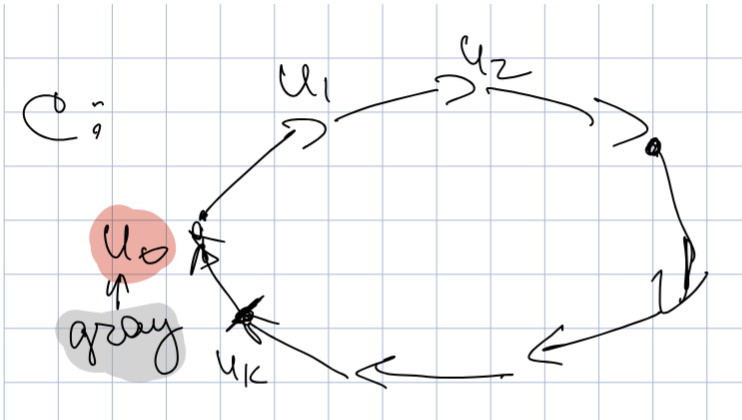 C:
u1
u2
u0
gray
uk